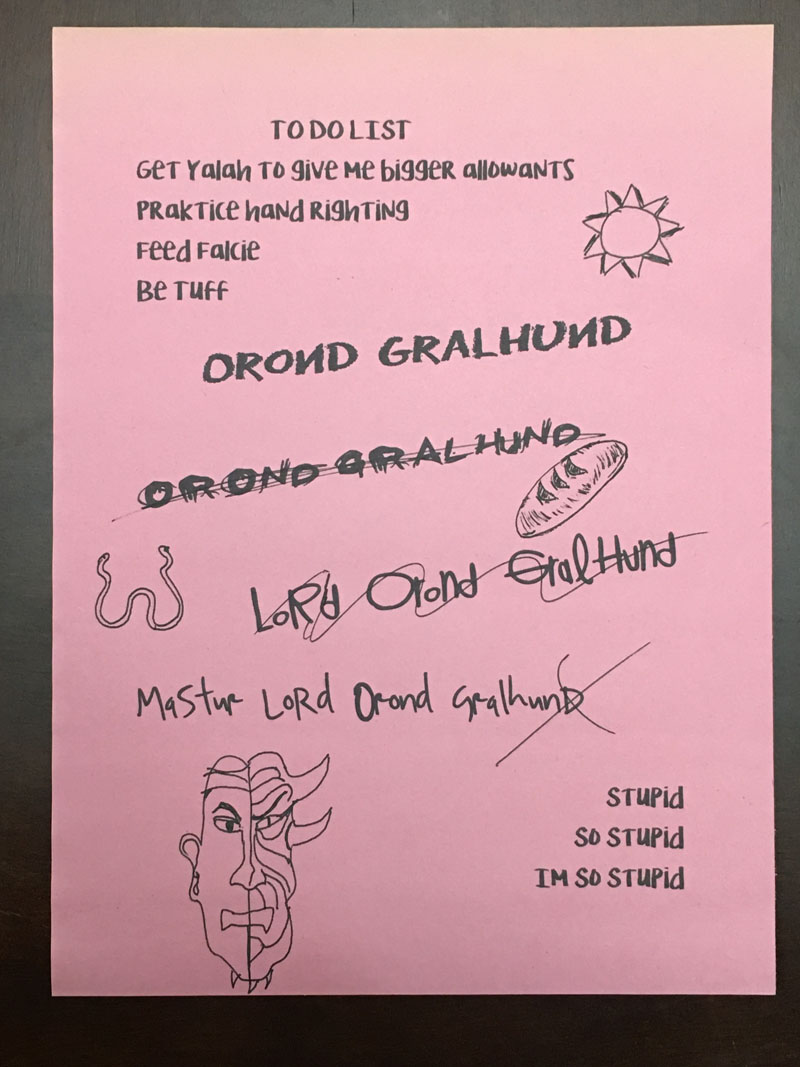 TO DO LIST
GeT Yalah To give Me bigger allowaNTS
PRakTice haNd RighTiNg
Feed Falcie
Be Tuff
OROND GRALHUND
OROND GRALHUND
LoRd Orond GralHund
Mastur LoRd Orond GralhunD
STupid
So STupid
IM So STupid